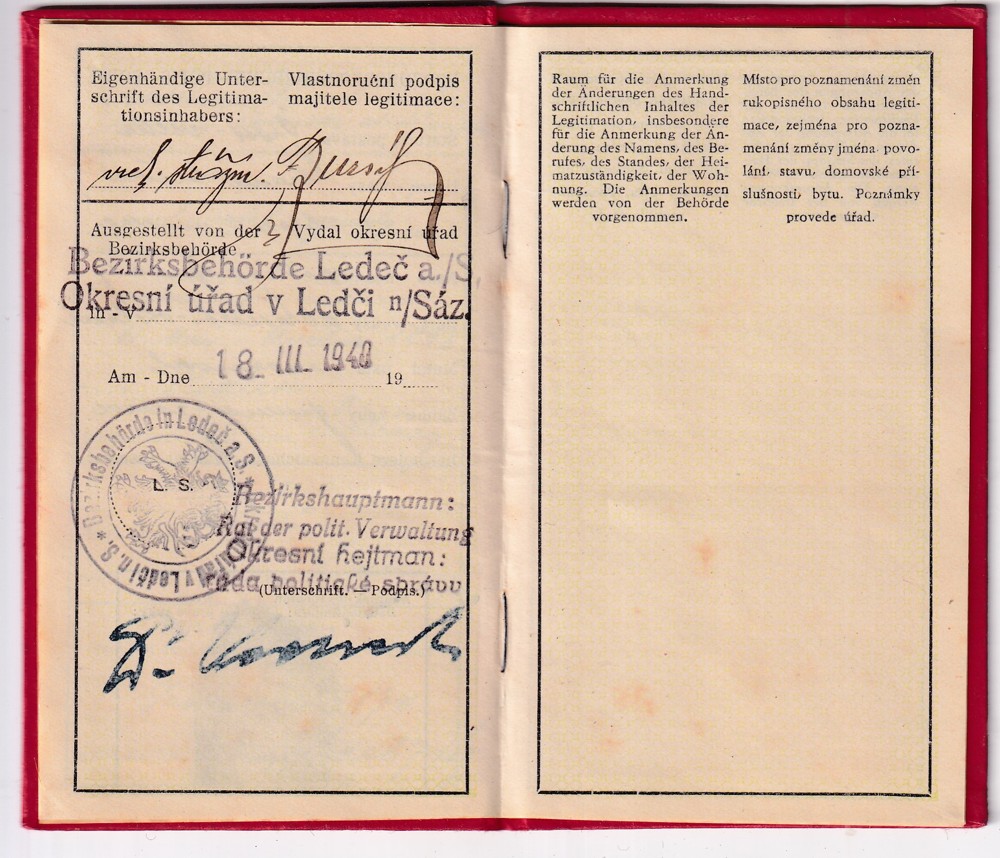 Eigenhändige Unter-
schrift des Legitima-
tionsinhabers:
Vlastnoruční podpis
majitele legitimace:
Ausgestellt von der
Bezirksbehörde
Vydal okresní úřad
Bezirksbehörde Ledeč a./S.
Okresní úřad v Ledči n/Sáz.
in - v
18. III. 1940
Am - Dne 19
Bezirksbehörde in Ledeč a. S. * Okresní úřad v Ledči n. S. *
L. S.
Bezirkshauptmann:
Rat der polit. Verwaltung
Okresní hejtman:
rada politické správy
(Unterschrift. — Podpis.)
Dr.
Raum für die Anmerkung
der Änderungen des Hand-
schriftlichen Inhaltes der
Legitimation, insbesondere
für die Anmerkung der Än-
derung des Namens, des Be-
rufes, des Standes, der Hei-
matzuständigkeit, der Woh-
nung. Die Anmerkungen
werden von der Behörde
vorgenommen.
Místo pro poznamenání změn
rukopisného obsahu legiti-
mace, zejména pro pozna-
menání změny jména, povo-
lání, stavu, domovské pří-
slušnosti, bytu. Poznámky
provede úřad.